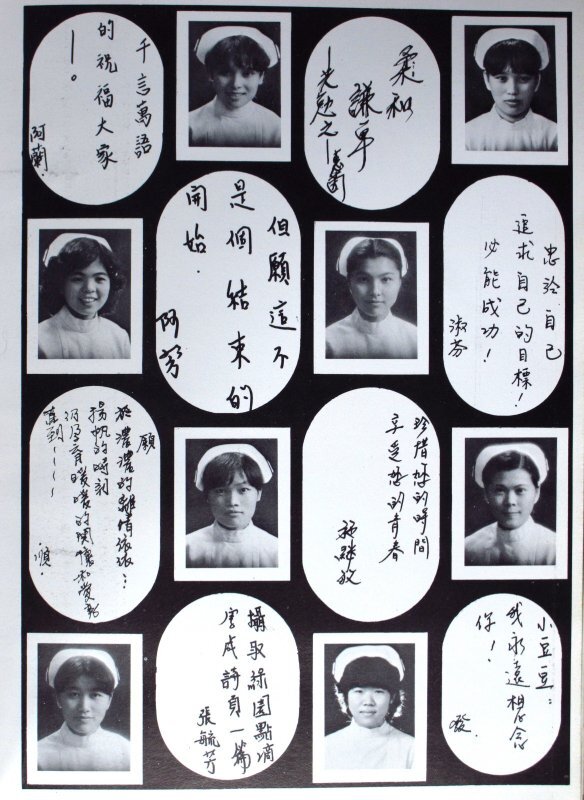 千言萬語
的祝福大家
—。
阿蘭.
柔和
謙卑
—共勉之—
但願這不
是個結束的
開始.
阿芳
忠於自己
追求自己的目標!
必能成功!
淑芬
願
於濃濃的離情依依:
揚帆的時刻
仍孕育暖暖的関懷和愛
直到————
順.
珍惜您的時間
享受您的青春
攝取綠園點滴
寫成詩頁一篇
張毓芳
小豆豆:
我永遠想念
你!